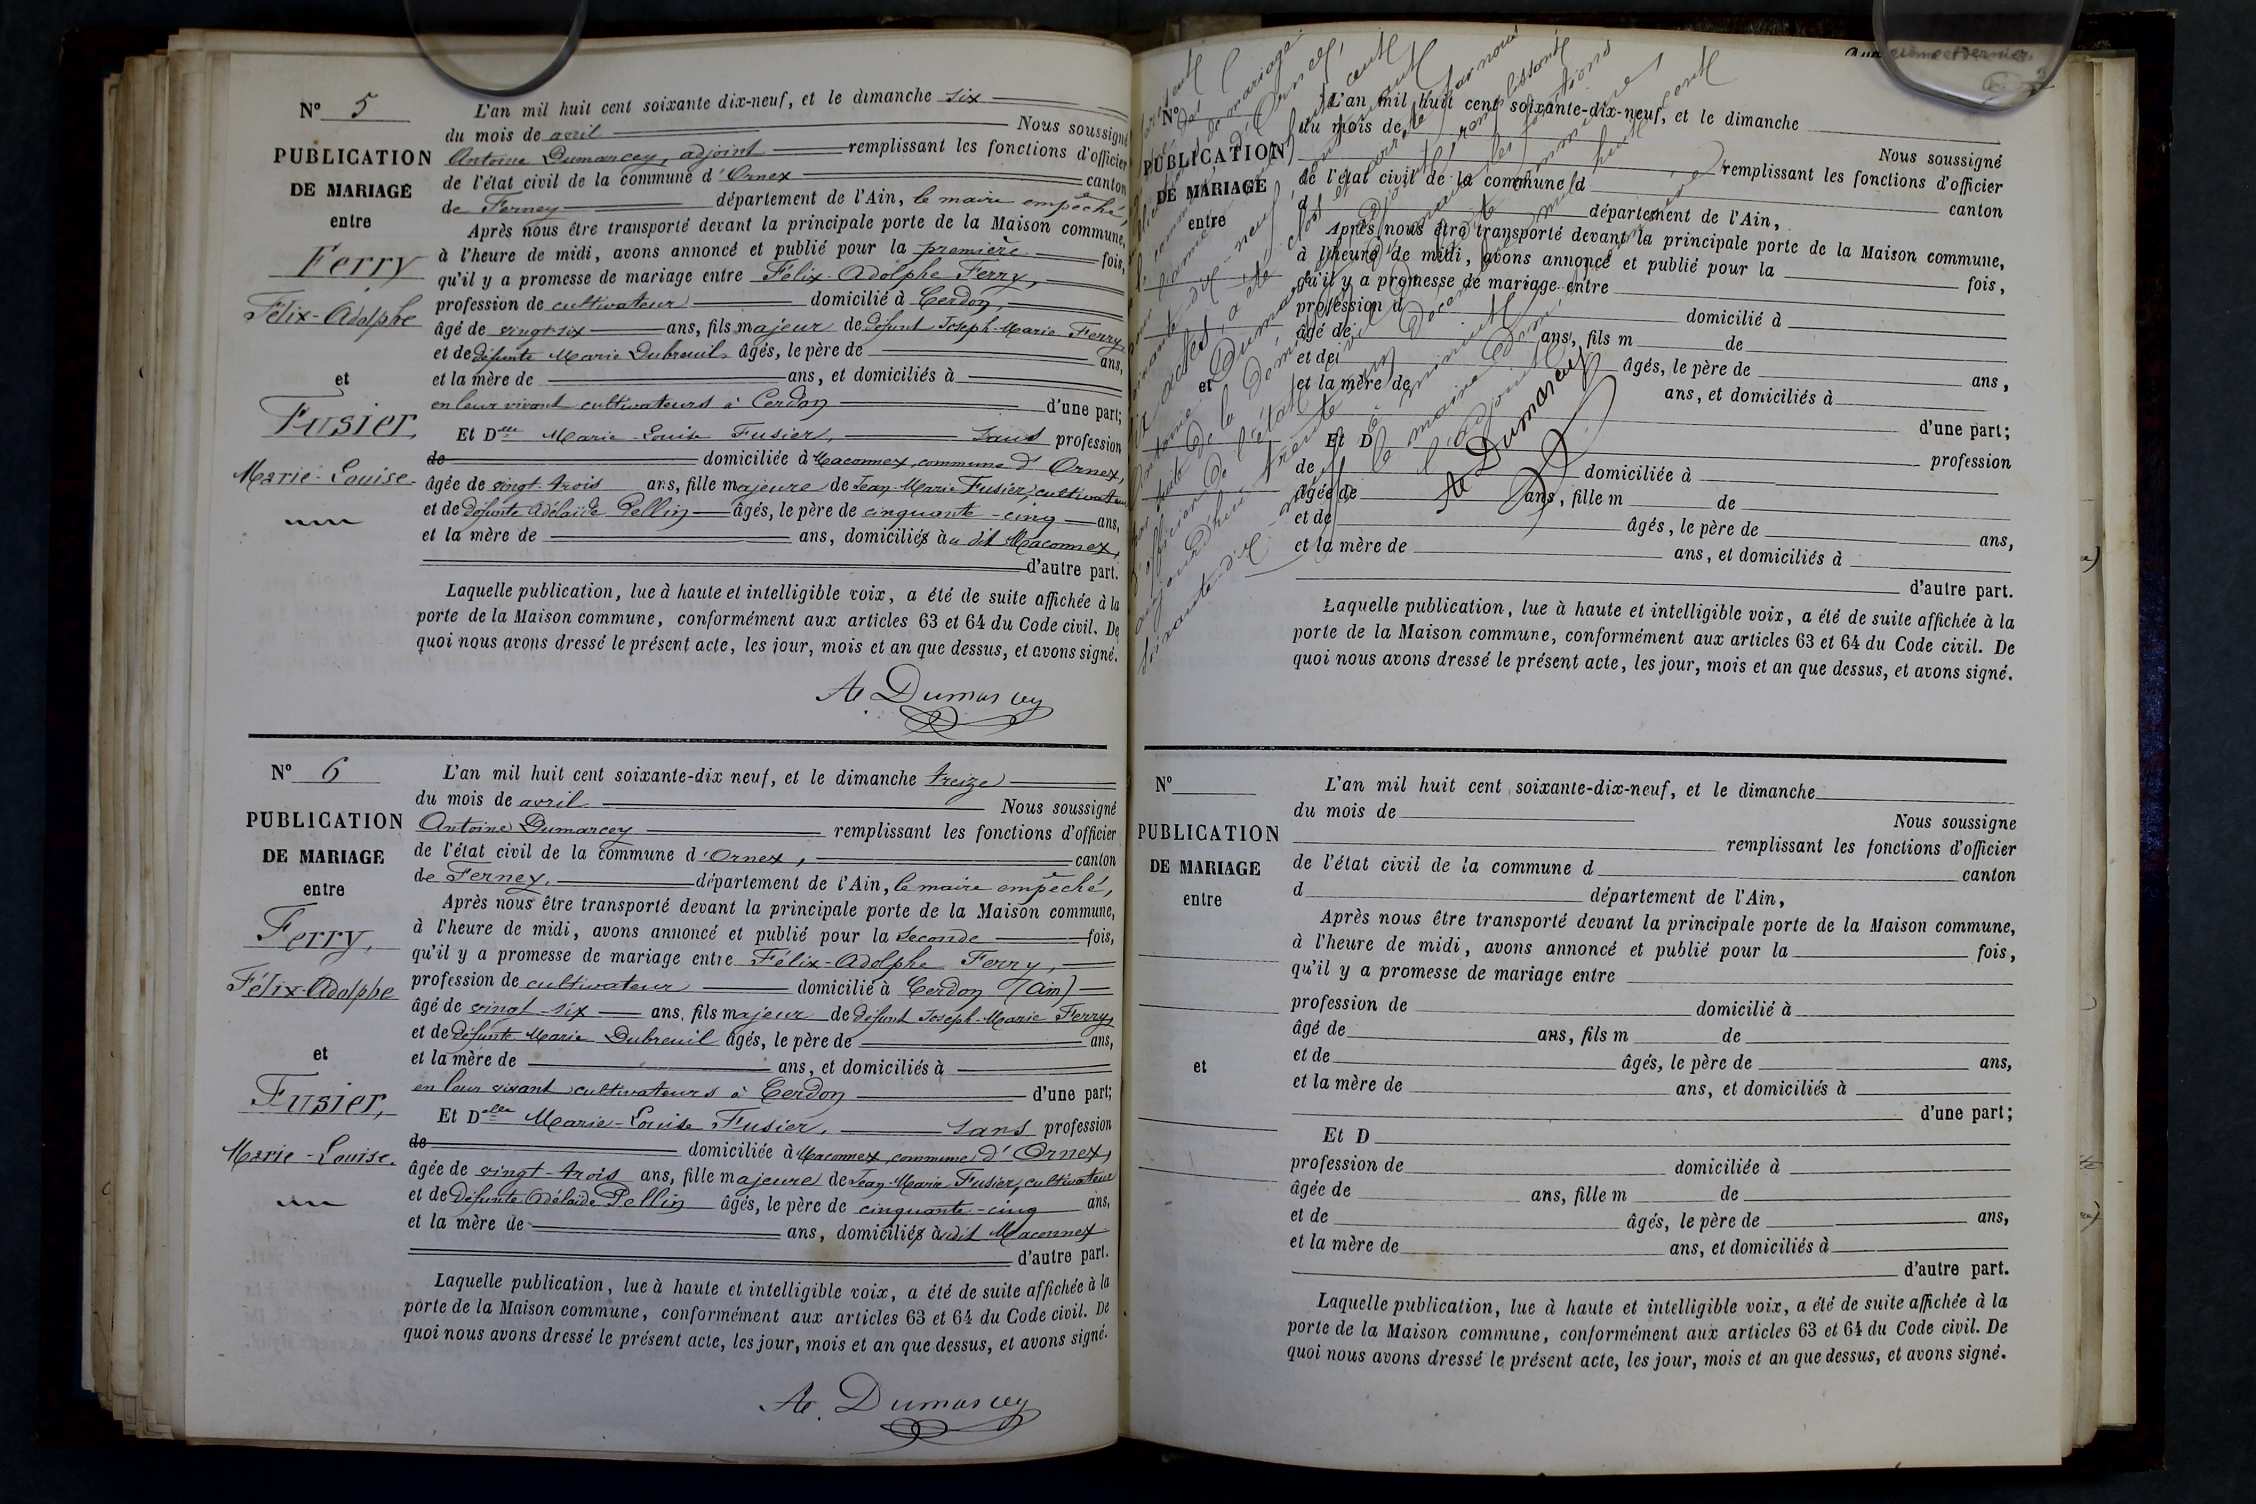 N° 5
PUBLICATION
DE MARIAGE
entre
Ferry
Félix-Adolphe
et
Fusier,
Marie-Louise.
L'an mil huit cent soixante dix-neuf, et le dimanche six
du mois de avril Nous soussigné
Antoine Dumarcey, adjoint remplissant les fonctions d'officier
de l'état civil de la commune d'Ornex canton
de Ferney département de l'Ain, le maire empêché,
Après nous être transporté devant la principale porte de la Maison commune,
à l'heure de midi, avons annoncé et publié pour la première fois,
qu'il y a promesse de mariage entre Félix-Adolphe Ferry,
profession de cultivateur domicilié à Cerdon,
âgé de vingt-six ans, fils majeur de défunt Joseph-Marie Ferry
et de défunte Marie Dubreuil âgés, le père de ans,
et la mère de ans, et domiciliés à
en leur vivant cultivateurs à Cerdon d'une part;
Et Delle Marie-Louise Fusier, sans profession
de domiciliée à Maconnex, commune d'Ornex,
âgée de vingt-trois ans, fille majeure de Jean-Marie Fusier, cultivateur
et de défunte Adélaïde Pellin âgés, le père de cinquante-cinq ans,
et la mère de ans, domiciliés au dit Maconnex,
d'autre part.
Laquelle publication, lue à haute et intelligible voix, a été de suite affichée à la
porte de la Maison commune, conformément aux articles 63 et 64 du Code civil. De
quoi nous avons dressé le présent acte, les jour, mois et an que dessus, et avons signé.
At. Dumarcey
N° 6
PUBLICATION
DE MARIAGE
entre
Ferry,
Félix-Adolphe
et
Fusier,
Marie-Louise.
L'an mil huit cent soixante-dix neuf, et le dimanche treize
du mois de avril Nous soussigné
Antoine Dumarcey remplissant les fonctions d'officier
de l'état civil de la commune d'Ornex, canton
de Ferney, département de l'Ain, le maire empêché,
Après nous être transporté devant la principale porte de la Maison commune,
à l'heure de midi, avons annoncé et publié pour la seconde fois,
qu'il y a promesse de mariage entre Félix-Adolphe Ferry,
profession de cultivateur domicilié à Cerdon (Ain)
âgé de vingt-six ans, fils majeur de défunt Joseph-Marie Ferry,
et de défunte Marie Dubreuil âgés, le père de ans,
et la mère de ans, et domiciliés à
en leur vivant cultivateurs à Cerdon d'une part;
Et Delle Marie-Louise Fusier, sans profession
de domiciliée à Maconnex, commune d'Ornex,
âgée de vingt-trois ans, fille majeure de Jean-Marie Fusier, cultivateur
et de défunte Adélaïde Pellin âgés, le père de cinquante-cinq ans,
et la mère de ans, domiciliés audit Maconnex
d'autre part.
Laquelle publication, lue à haute et intelligible voix, a été de suite affichée à la
porte de la Maison commune, conformément aux articles 63 et 64 du Code civil. De
quoi nous avons dressé le présent acte, les jour, mois et an que dessus, et avons signé.
At. Dumarcey
et dernier
N°
PUBLICATION
DE MARIAGE
entre
et
L'an mil huit cent soixante-dix-neuf, et le dimanche
du mois de Nous soussigné
remplissant les fonctions d'officier
de l'état civil de la commune d canton
d département de l'Ain,
Après nous être transporté devant la principale porte de la Maison commune,
à l'heure de midi, avons annoncé et publié pour la fois,
qu'il y a promesse de mariage entre
profession d domicilié à
âgé de ans, fils m de
et de âgés, le père de ans,
et la mère de ans, et domiciliés à
d'une part;
Et D profession
de domiciliée à
âgée de ans, fille m de
et de âgés, le père de ans,
et la mère de ans, et domiciliés à
d'autre part.
Laquelle publication, lue à haute et intelligible voix, a été de suite affichée à la
porte de la Maison commune, conformément aux articles 63 et 64 du Code civil. De
quoi nous avons dressé le présent acte, les jour, mois et an que dessus, et avons signé.
de mariage
d'Ornex,
huit cent
soixante-dix-neuf,
actes, a été clos et arrêté par nous
Antoine Dumarcey adjoint remplissant
par suite de la démission du maire les fonctions
d'officier de l'état civil de la commune,
aujourd'hui trente un Décembre mil huit cent
soixante-dix-neuf à minuit
le maire
l'adjoint
At Dumarcey
N°
PUBLICATION
DE MARIAGE
entre
et
L'an mil huit cent soixante-dix-neuf, et le dimanche
du mois de Nous soussigne
remplissant les fonctions d'officier
de l'état civil de la commune d canton
d département de l'Ain,
Après nous être transporté devant la principale porte de la Maison commune,
à l'heure de midi, avons annoncé et publié pour la fois,
qu'il y a promesse de mariage entre
profession de domicilié à
âgé de ans, fils m de
et de âgés, le père de ans,
et la mère de ans, et domiciliés à
d'une part;
Et D
profession de domiciliée à
âgée de ans, fille m de
et de âgés, le père de ans,
et la mère de ans, et domiciliés à
d'autre part.
Laquelle publication, lue à haute et intelligible voix, a été de suite affichée à la
porte de la Maison commune, conformément aux articles 63 et 64 du Code civil. De
quoi nous avons dressé le présent acte, les jour, mois et an que dessus, et avons signé.